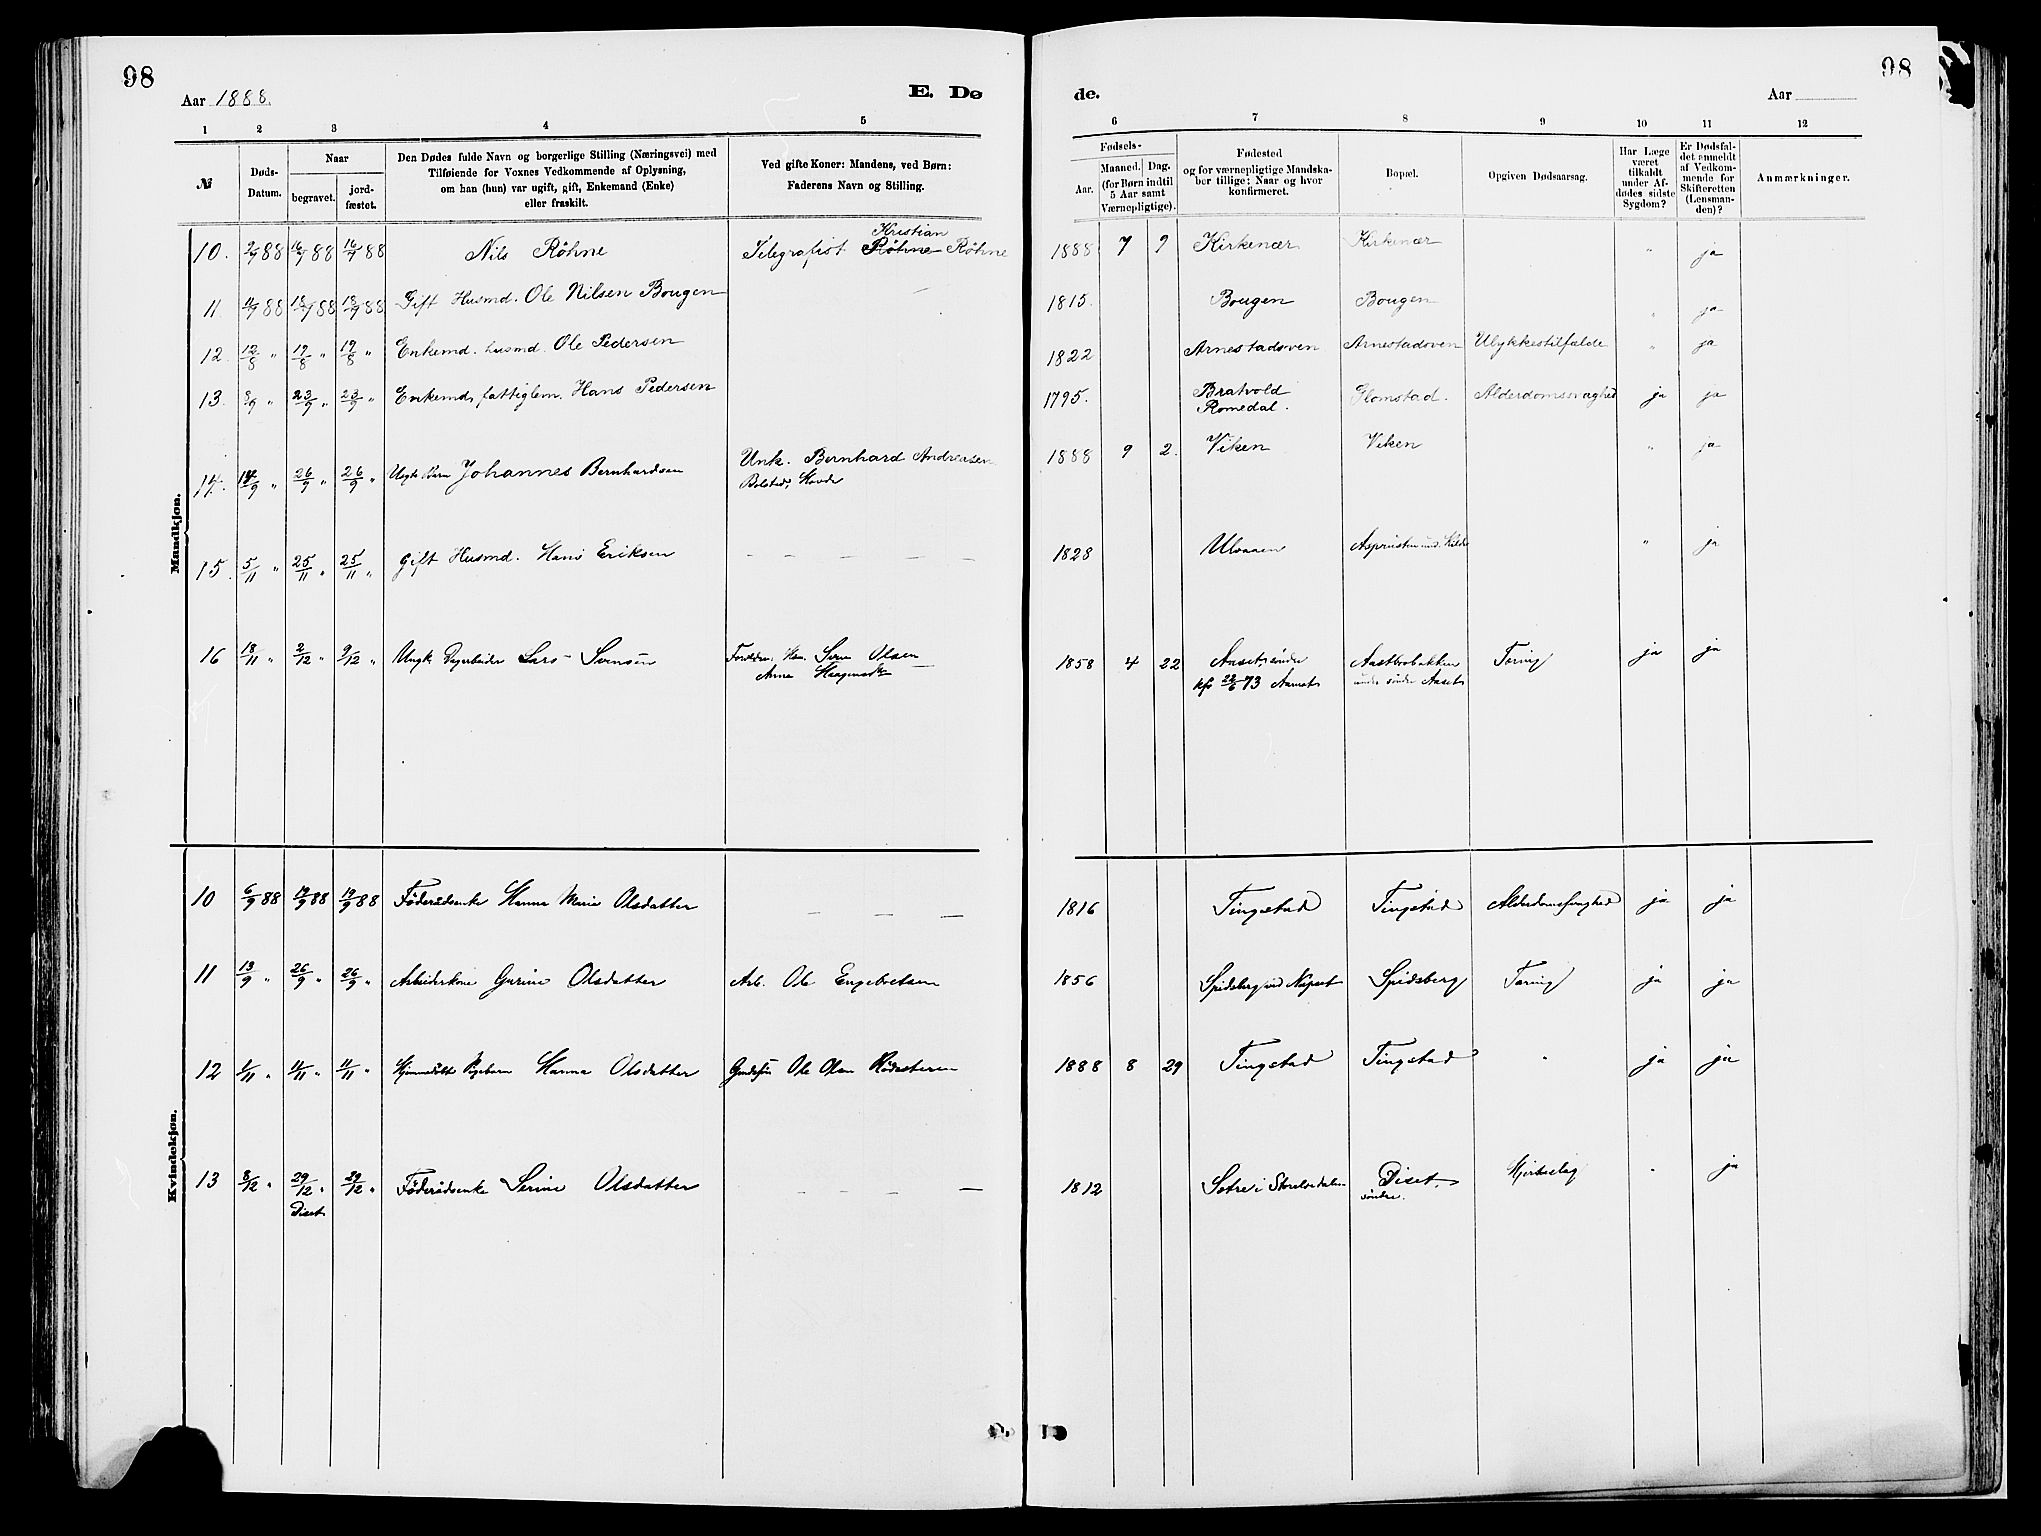 98
98
Aar 1888.
E. Dø
de.
Aar
1 2 3 4 5
6 7 8 9 10 11 12
№
Døds-Datum.
Naar
begravet.
jord-fæstet.
Den Dødes fulde Navn og borgerlige Stilling (Næringsvei) med
Tilføiende for Voxnes Vedkommende af Oplysning,
om han (hun) var ugift, gift, Enkemand (Enke)
eller fraskilt.
Ved gifte Koner: Mandens, ved Børn:
Faderens Navn og Stilling.
Fødsels-
Aar.
Maaned. Dag.
(for Børn indtil
5 Aar samt
Værnepligtige).
Fødested
og for værnepligtige Mandska-
ber tillige: Naar og hvor
konfirmeret.
Bopæl.
Opgiven Dødsaarsag.
Har Læge
været
tilkaldt
under Af-
dødes sidste
Sygdom?
Er Dødsfal-
det anmeldt
af Vedkom-
mende for
Skifteretten
(Lensman-
den)?
Anmærkninger.
Mandkjøn.
Kristian
10. 2/7 88 16/7 88 16/7 88 Nils Röhne Telegrafist Röhne Röhne 1888 7 Kirkenær Kirkenær " ja
11. 88 18/7 88 18/7 88 Gift Husmd. Ole Nilsen Bougen — 1815. Bougen Bougen " ja
12. 12/8 " 19/8 " 19/8 " Enkemd. husmd. Ole Pedersen 1822 Arnestadsven Arnestadsven Ulykkestilfælde " ja
13. 8/9 " 23/9 " 23/9 " Enkemd. fattiglem. Hans Pedersen 1795. Bratvold Glomstad. Alderdomssvaghed ja ja
Romedal.
14. 14/9 " 26/9 " 26/9 " Johannes Bernhardsen Unk. Bernhard Andreasen 1888 9 2. Viken Viken " ja
Bolstad,
15. 5/11 " 25/11 " 25/11 " Gift Husmd. Hans Eriksen — — — — — 1828 Ulvaaen " ja
16 18/11 " 2/12 " 2/12 " Ungk. Lars Sørensen Olsen 1858 4 22 Aaset søndre Tæring ja ja
Anna kfr 73 under søndre Aaset
Kvindekjøn.
10 6/9 88 19/9 88 19/9 88 Føderådsenke Hanna Marie Olsdatter — — — 1816 Tingstad Tingstad Alderdomssvaghed ja ja
11 13/9 " 26/9 " 26/9 " Arbeiderkone Gurine Olsdatter Arb. Ole Engebretsen 1856 Spidsberg Spidsberg Tæring ja ja
12 1/11 " 11/11 " 11/11 " Hjemmedøbt Hanna Olsdatter Ole Olsen 1888 8 29 Tingstad Tingstad " ja ja
13 8/12 " 29/12 " 29/12 " Føderådsenke Serine Olsdatter — — — — 1812 Sætre i Storelvedalen Diset. Hjerteslag " ja
Diset søndre.